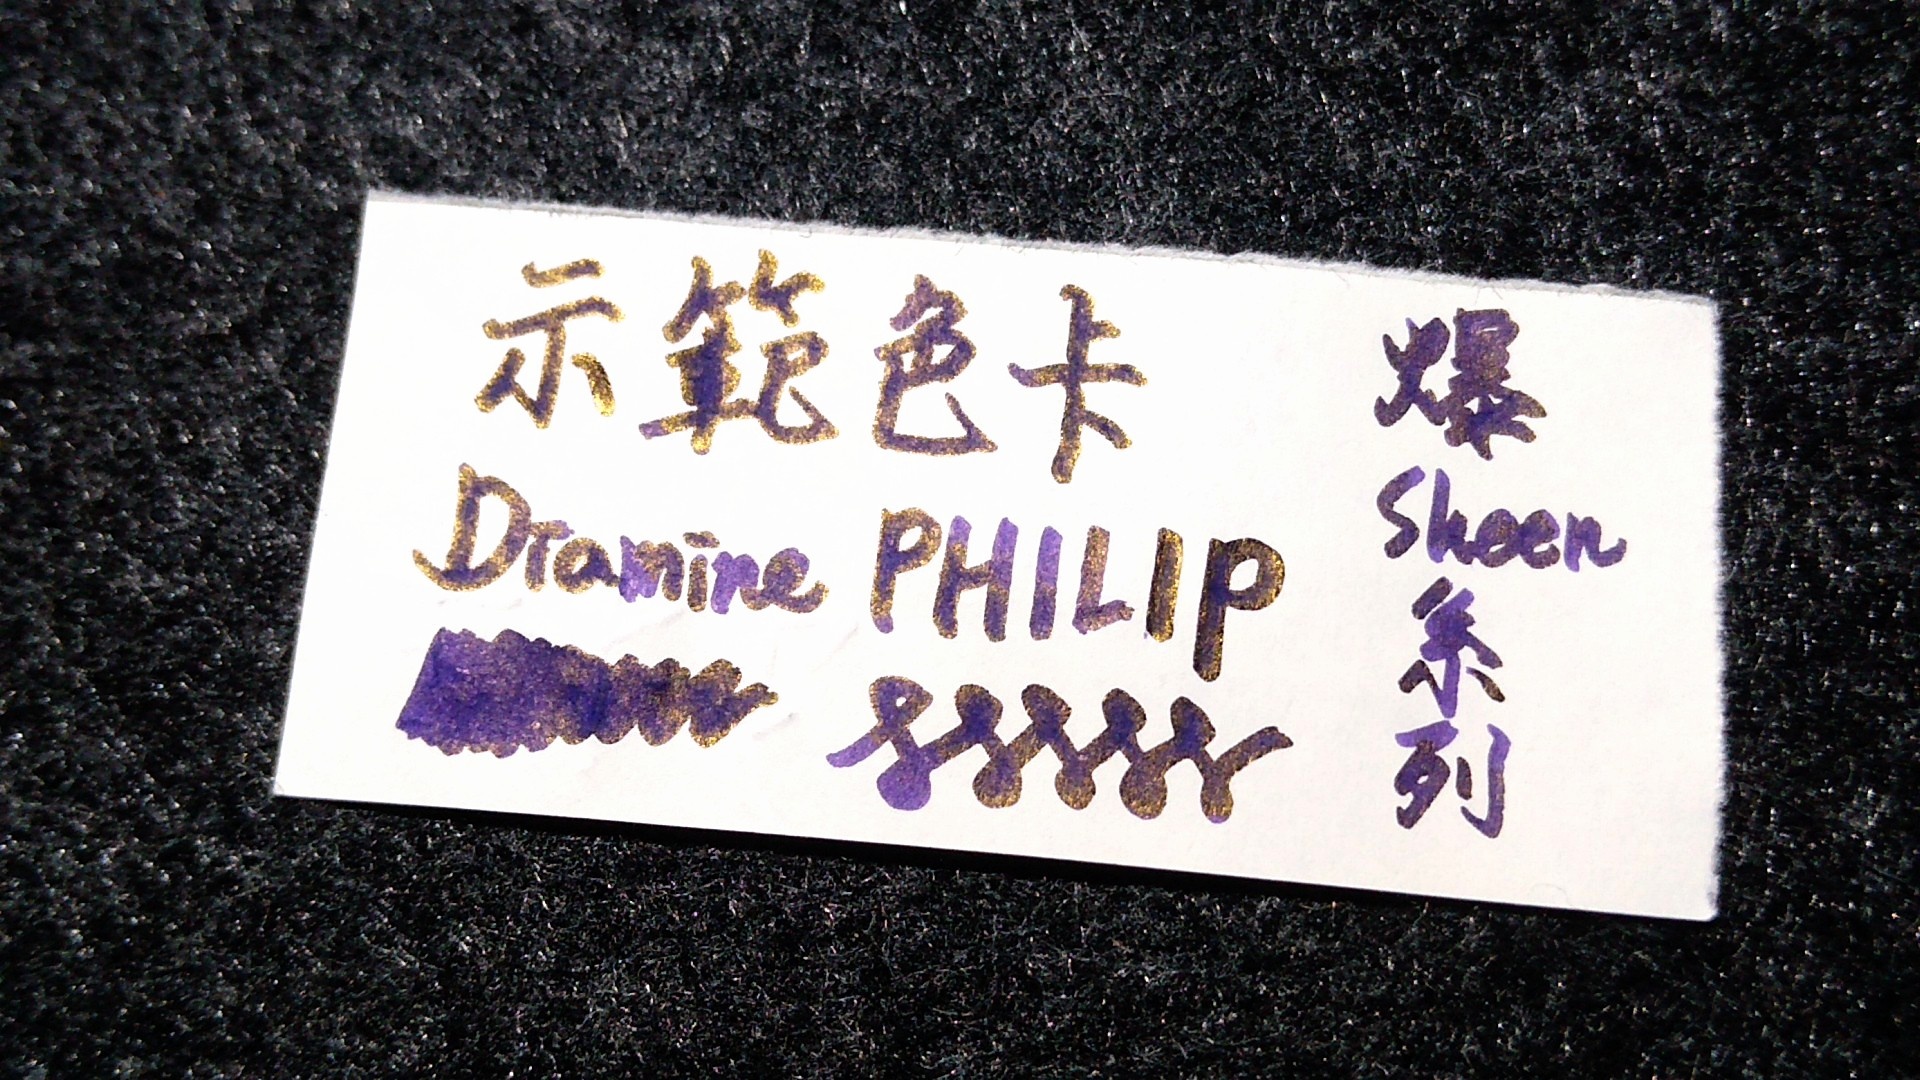 示範色卡
Diamine PHILIP
爆
Sheen
系
列